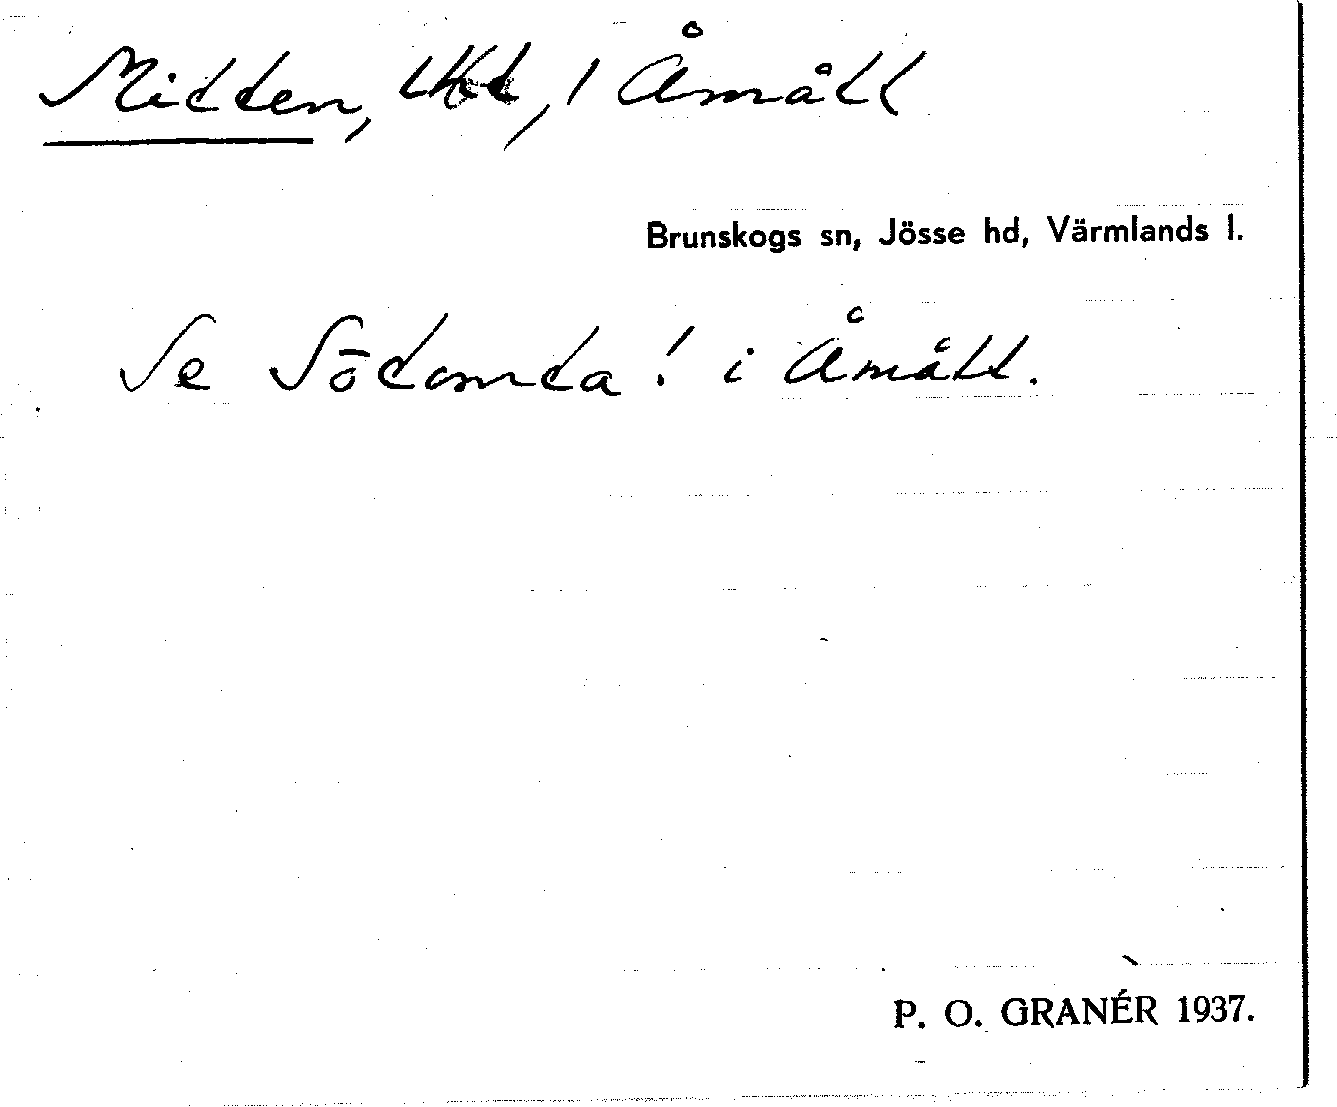 Mitten, i Åmått
Brunskogs sn, Jösse hd, Värmlands l.
Se Sötomta! i Åmått.
P. O. GRANÉR 1937.